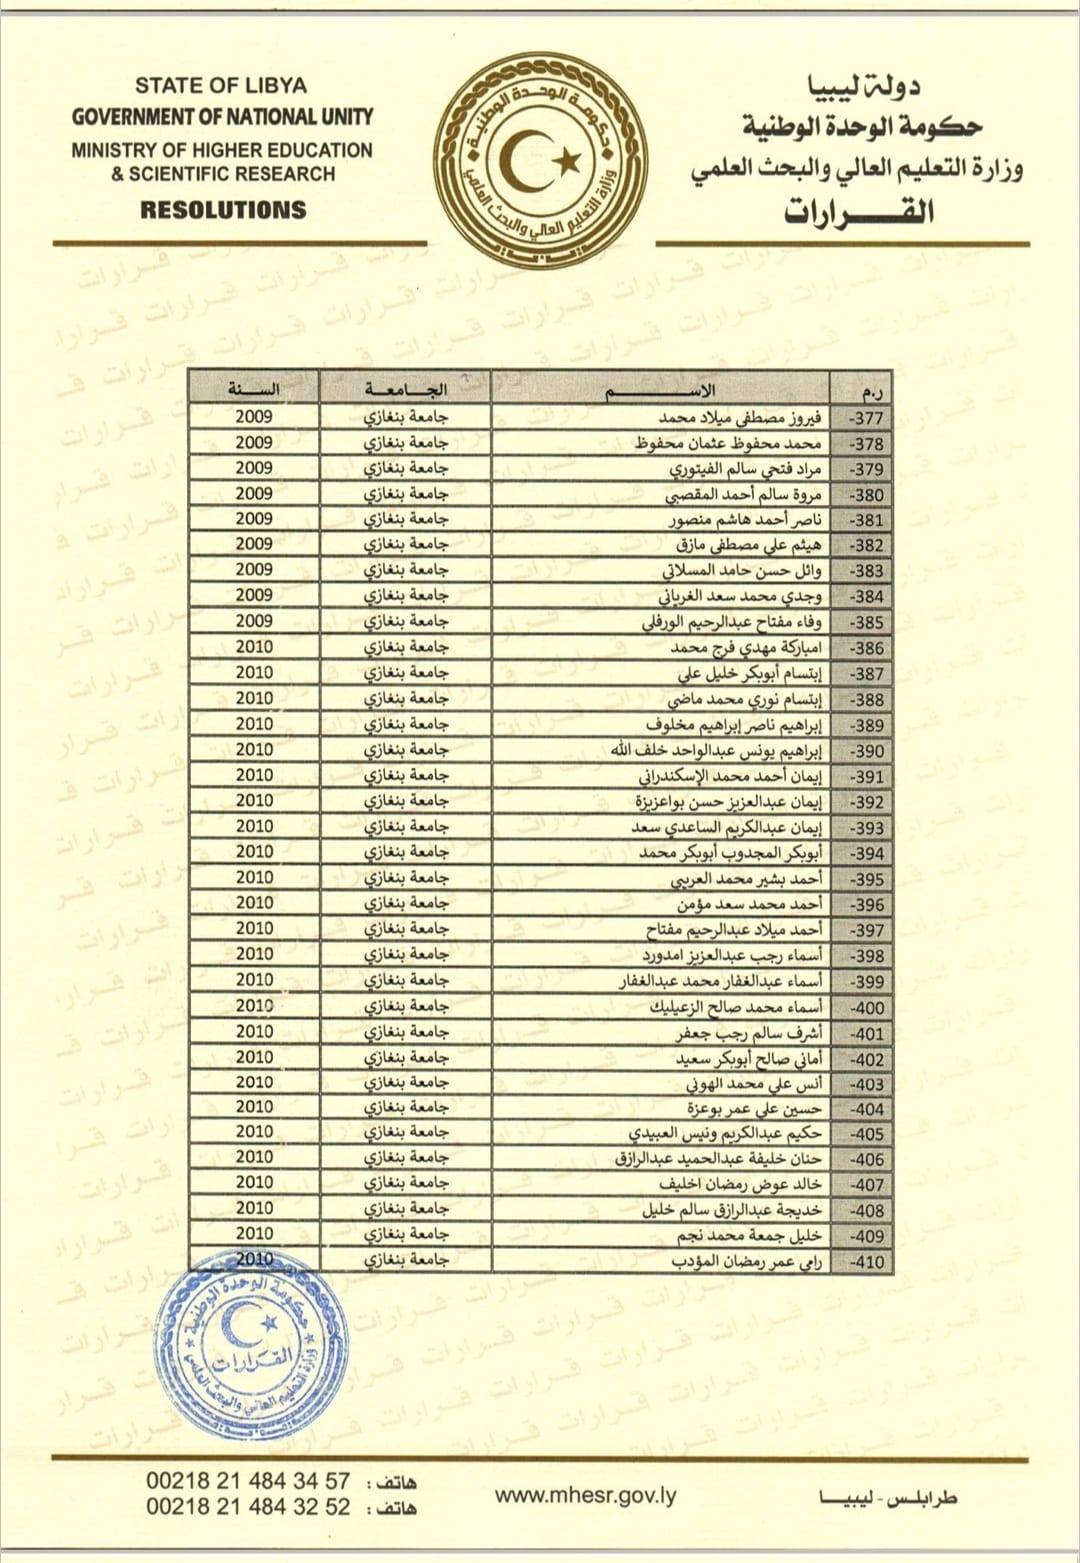 STATE OF LIBYA
GOVERNMENT OF NATIONAL UNITY
MINISTRY OF HIGHER EDUCATION
& SCIENTIFIC RESEARCH
RESOLUTIONS
حكومة الوحدة الوطنية
وزارة التعليم العالي والبحث العلمي
دولة ليبيا
حكومة الوحدة الوطنية
وزارة التعليم العالي والبحث العلمي
القـــرارات
ر.م الاســـم الجـامعـة السـنة
377- فيروز مصطفى ميلاد محمد جامعة بنغازي 2009
378- محمد محفوظ عثمان محفوظ جامعة بنغازي 2009
379- مراد فتحي سالم الفيتوري جامعة بنغازي 2009
380- مروة سالم أحمد المقصبي جامعة بنغازي 2009
381- ناصر أحمد هاشم منصور جامعة بنغازي 2009
382- هيثم علي مصطفى مازق جامعة بنغازي 2009
383- وائل حسن حامد المسلاتي جامعة بنغازي 2009
384- وجدي محمد سعد الغرياني جامعة بنغازي 2009
385- وفاء مفتاح عبدالرحيم الورفلي جامعة بنغازي 2009
386- امباركة مهدي فرج محمد جامعة بنغازي 2010
387- إبتسام أبوبكر خليل علي جامعة بنغازي 2010
388- إبتسام نوري محمد ماضي جامعة بنغازي 2010
389- إبراهيم ناصر إبراهيم مخلوف جامعة بنغازي 2010
390- إبراهيم يونس عبدالواحد خلف الله جامعة بنغازي 2010
391- إيمان أحمد محمد الإسكندراني جامعة بنغازي 2010
392- إيمان عبدالعزيز حسن بواعزيزة جامعة بنغازي 2010
393- إيمان عبدالكريم الساعدي سعد جامعة بنغازي 2010
394- أبوبكر المجدوب أبوبكر محمد جامعة بنغازي 2010
395- أحمد بشير محمد العريبي جامعة بنغازي 2010
396- أحمد محمد سعد مؤمن جامعة بنغازي 2010
397- أحمد ميلاد عبدالرحيم مفتاح جامعة بنغازي 2010
398- أسماء رجب عبدالعزيز امدورد جامعة بنغازي 2010
399- أسماء عبدالغفار محمد عبدالغفار جامعة بنغازي 2010
400- أسماء محمد صالح الزعيليك جامعة بنغازي 2010
401- أشرف سالم رجب جعفر جامعة بنغازي 2010
402- أماني صالح أبوبكر سعيد جامعة بنغازي 2010
403- أنس علي محمد الهوني جامعة بنغازي 2010
404- حسين علي عمر بوعزة جامعة بنغازي 2010
405- حكيم عبدالكريم ونيس العبيدي جامعة بنغازي 2010
406- حنان خليفة عبدالحميد عبدالرازق جامعة بنغازي 2010
407- خالد عوض رمضان اخليف جامعة بنغازي 2010
408- خديجة عبدالرازق سالم خليل جامعة بنغازي 2010
409- خليل جمعة محمد نجم جامعة بنغازي 2010
410- رامي عمر رمضان المؤدب جامعة بنغازي 2010
حكومة الوحدة الوطنية
القرارات
وزارة التعليم العالي والبحث العلمي
هاتف : 00218 21 484 34 57
هاتف : 00218 21 484 32 52
www.mhesr.gov.ly
طرابلس - ليبيـا